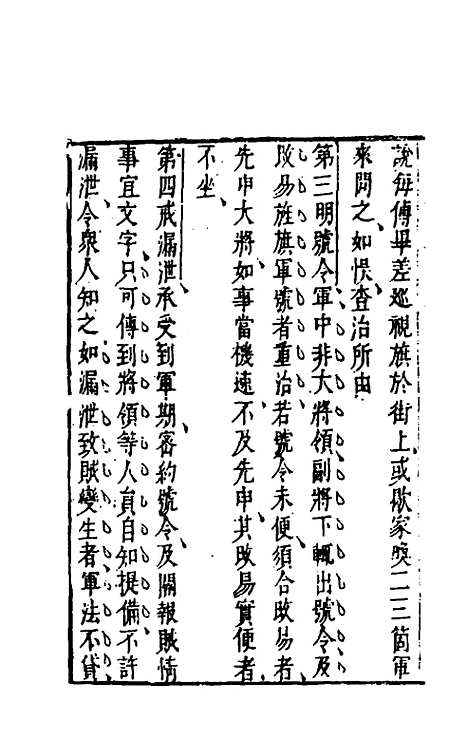 說每傳畢差巡視旗於街上或歇家喚二三箇軍
來問之如悞查治所由
第三明號令軍中非大將領副將下輒出號令及
改易旌旗軍號者重治若號令未便須合改易者
先申大將如事當機速不及先申其改易實便者
不坐
第四戒漏泄承受到軍期密約號令及關報賊情
事宜文字只可傳到將領等人員自知提備不許
漏泄令衆人知之如漏泄致賊變生者軍法不貸